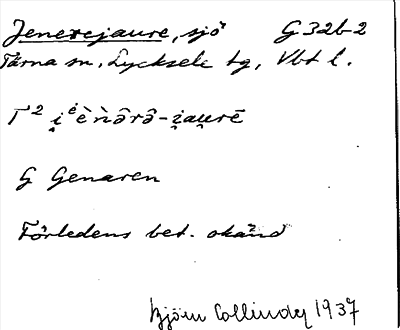 Jenerejaure, sjö G 32b-2
Tärna sn, Lycksele lg, Vbt l.
Γ² i̭ėὲǹə̑rə̑-i̭au̯rē
G Genaren
Förledens bet. okänd
Björn Collinder 1937